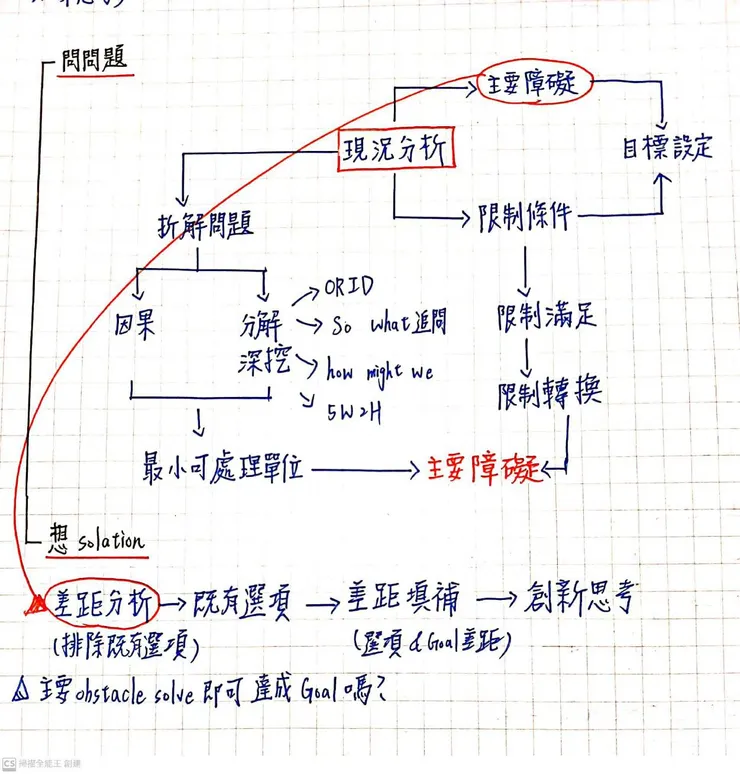 問問題
主要障礙
現況分析
目標設定
折解問題
限制條件
因果
分解
深挖
ORID
So what 追問
how might we
5W2H
限制滿足
限制轉換
最小可處理單位
主要障礙
想 solation
差距分析 → 既有選項 → 差距填補 → 創新思考
(排除既有選項)
(選項 & Goal 差距)
△ 主要 obstacle solve 即可達成 Goal 嗎?
CS 掃描全能王 創建